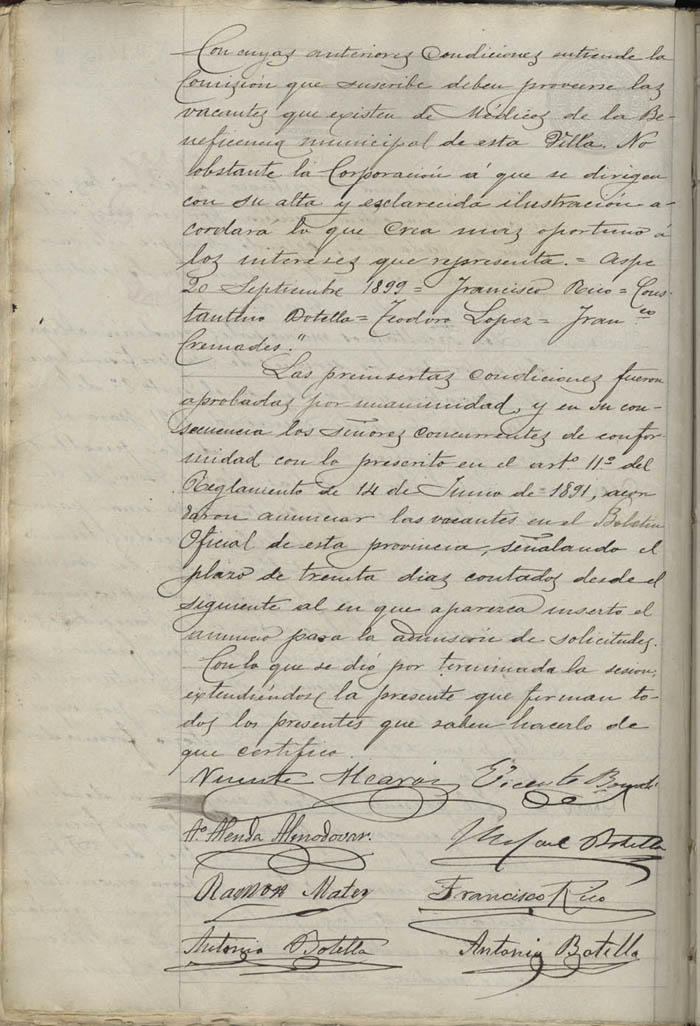 Con cuyas anteriores Condiciones entiende la
Comisión que suscribe deben proveerse las
vacantes que existen de Médicos de la Be-
neficencia municipal de esta Villa. No
obstante la Corporación á que se dirigen
con su alta y esclarecida ilustración a-
cordará lo que crea mas oportuno á
los intereses que representa. = Aspe
20 Septiembre 1899 = Francisco Rico = Cons-
tantino Botella = Teodoro Lopez = Fran.co
Cremades."
Las preinsertas condiciones fueron
aprobadas por unanimidad, y en su con-
secuencia los señores concurrentes de confor-
midad con lo prescrito en el artº 11º del
Reglamento de 14 de Junio de 1891, acor
daron anunciar las vacantes en el Boletin
Oficial de esta provincia, señalando el
plazo de treinta dias contados desde el
siguiente al en que aparezca inserto el
anuncio para la admisión de solicitudes.
Con lo que se dió por terminada la sesion,
extendiéndose la presente que firman to-
dos los presentes que saben hacerlo de
que certifico.
Vicente Alcaraz Vicente
Aº Alenda Almodovar. Rafael Botella
Ramon Mater Francisco Rico
Antonio Botella Antonio Botella